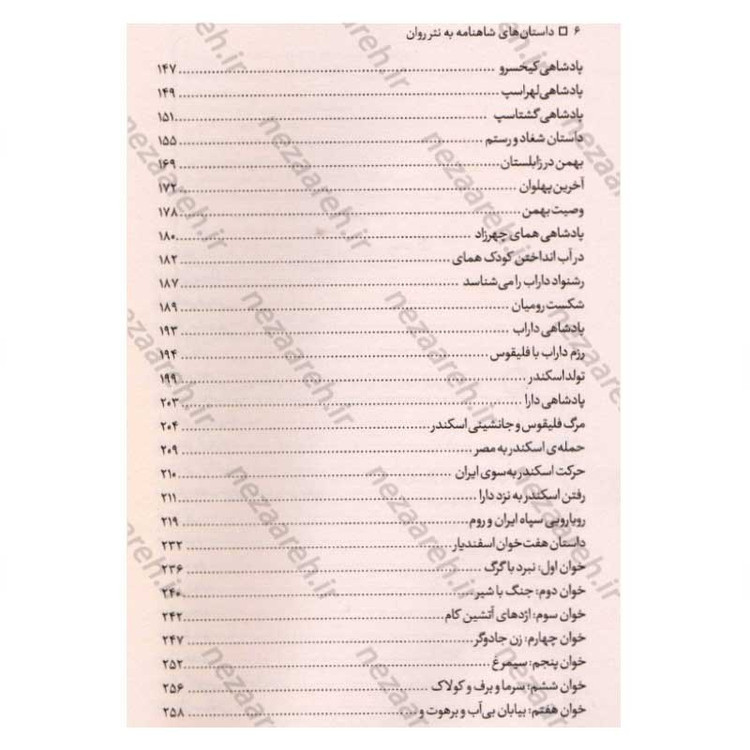 ۶ □ داستان‌های شاهنامه به نثر روان
پادشاهی کیخسرو ........ ۱۴۷
پادشاهی لهراسپ ........ ۱۴۹
پادشاهی گشتاسپ ........ ۱۵۱
داستان شغاد و رستم ........ ۱۵۵
بهمن در زابلستان ........ ۱۶۹
آخرین پهلوان ........ ۱۷۲
وصیت بهمن ........ ۱۷۸
پادشاهی همای چهرزاد ........ ۱۸۰
در آب انداختن کودک همای ........ ۱۸۲
رشنواد داراب را می‌شناسد ........ ۱۸۷
شکست رومیان ........ ۱۸۹
پادشاهی داراب ........ ۱۹۳
رزم داراب با فلیقوس ........ ۱۹۴
تولد اسکندر ........ ۱۹۹
پادشاهی دارا ........ ۲۰۳
مرگ فلیقوس و جانشینی اسکندر ........ ۲۰۴
حمله‌ی اسکندر به مصر ........ ۲۰۹
حرکت اسکندر به سوی ایران ........ ۲۱۰
رفتن اسکندر به نزد دارا ........ ۲۱۱
رویارویی سپاه ایران و روم ........ ۲۱۹
داستان هفت‌خوان اسفندیار ........ ۲۳۲
خوان اول: نبرد با گرگ ........ ۲۳۶
خوان دوم: جنگ با شیر ........ ۲۴۰
خوان سوم: اژدهای آتشین کام ........ ۲۴۲
خوان چهارم: زن جادوگر ........ ۲۴۷
خوان پنجم: سیمرغ ........ ۲۵۲
خوان ششم: سرما و برف و کولاک ........ ۲۵۶
خوان هفتم: بیابان بی‌آب و برهوت و ........ ۲۵۸
nezaareh.ir